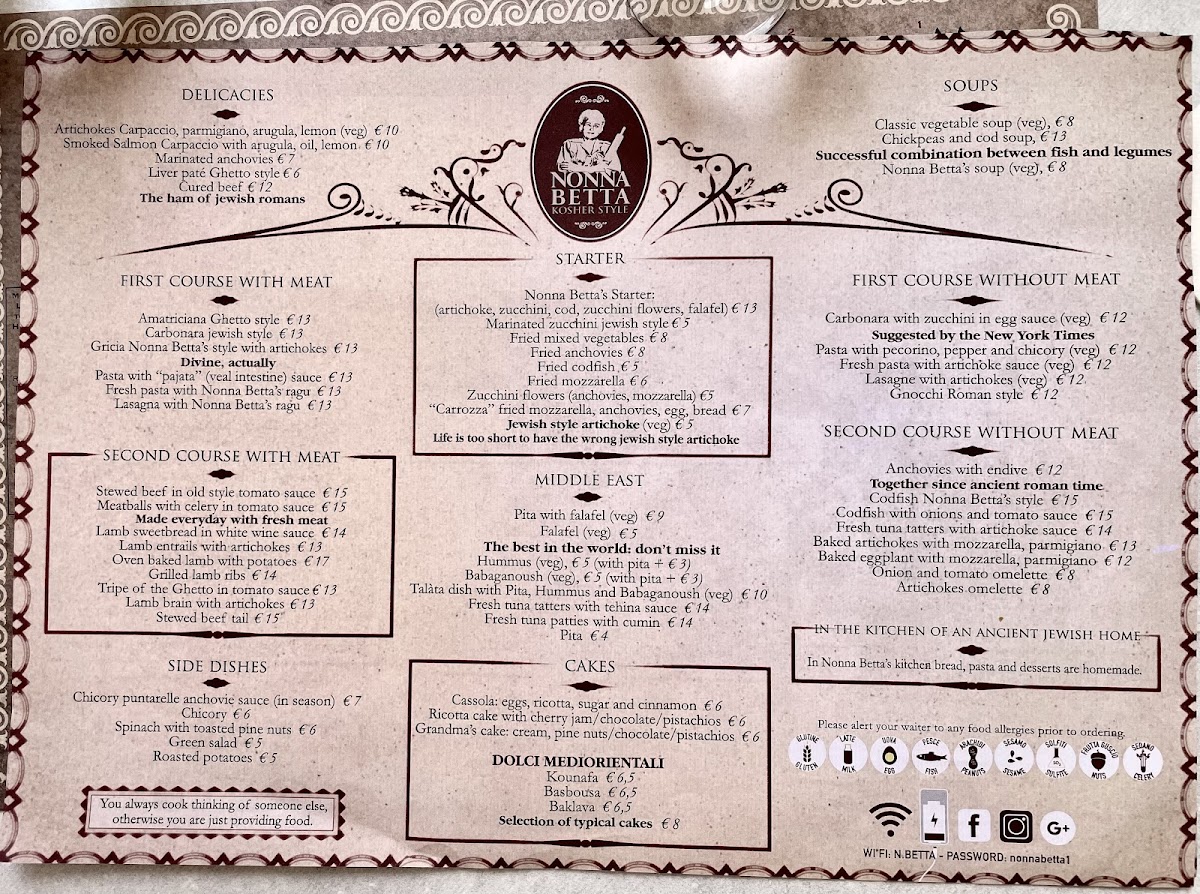 DELICACIES
Artichokes Carpaccio, parmigiano, arugula, lemon (veg) € 10
Smoked Salmon Carpaccio with arugula, oil, lemon € 10
Marinated anchovies € 7
Liver paté Ghetto style € 6
Cured beef € 12
The ham of jewish romans
NONNA
BETTA
KOSHER STYLE
SOUPS
Classic vegetable soup (veg), € 8
Chickpeas and cod soup, € 13
Successful combination between fish and legumes
Nonna Betta's soup (veg), € 8
FIRST COURSE WITH MEAT
Amatriciana Ghetto style € 13
Carbonara jewish style € 13
Gricia Nonna Betta's style with artichokes € 13
Divine, actually
Pasta with "pajata" (veal intestine) sauce € 13
Fresh pasta with Nonna Betta's ragu € 13
Lasagna with Nonna Betta's ragu € 13
SECOND COURSE WITH MEAT
Stewed beef in old style tomato sauce € 15
Meatballs with celery in tomato sauce € 15
Made everyday with fresh meat
Lamb sweetbread in white wine sauce € 14
Lamb entrails with artichokes € 13
Oven baked lamb with potatoes € 17
Grilled lamb ribs € 14
Tripe of the Ghetto in tomato sauce € 13
Lamb brain with artichokes € 13
Stewed beef tail € 15
SIDE DISHES
Chicory puntarelle anchovie sauce (in season) € 7
Chicory € 6
Spinach with toasted pine nuts € 6
Green salad € 5
Roasted potatoes € 5
You always cook thinking of someone else,
otherwise you are just providing food.
STARTER
Nonna Betta's Starter:
(artichoke, zucchini, cod, zucchini flowers, falafel) € 13
Marinated zucchini jewish style € 5
Fried mixed vegetables € 8
Fried anchovies € 8
Fried codfish € 5
Fried mozzarella € 6
Zucchini flowers (anchovies, mozzarella) €5
"Carrozza" fried mozzarella, anchovies, egg, bread € 7
Jewish style artichoke (veg) € 5
Life is too short to have the wrong jewish style artichoke
MIDDLE EAST
Pita with falafel (veg) € 9
Falafel (veg) € 5
The best in the world: don't miss it
Hummus (veg), € 5 (with pita + € 3)
Babaganoush (veg), € 5 (with pita + € 3)
Talàta dish with Pita, Hummus and Babaganoush (veg) € 10
Fresh tuna tatters with tehina sauce € 14
Fresh tuna patties with cumin € 14
Pita € 4
CAKES
Cassola: eggs, ricotta, sugar and cinnamon € 6
Ricotta cake with cherry jam/chocolate/pistachios € 6
Grandma's cake: cream, pine nuts/chocolate/pistachios € 6
DOLCI MEDIORIENTALI
Kounafa € 6,5
Basbousa € 6,5
Baklava € 6,5
Selection of typical cakes € 8
FIRST COURSE WITHOUT MEAT
Carbonara with zucchini in egg sauce (veg) € 12
Suggested by the New York Times
Pasta with pecorino, pepper and chicory (veg) € 12
Fresh pasta with artichoke sauce (veg) € 12
Lasagne with artichokes (veg) € 12
Gnocchi Roman style € 12
SECOND COURSE WITHOUT MEAT
Anchovies with endive € 12
Together since ancient roman time
Codfish Nonna Betta's style € 15
Codfish with onions and tomato sauce € 15
Fresh tuna tatters with artichoke sauce € 14
Baked artichokes with mozzarella, parmigiano € 13
Baked eggplant with mozzarella, parmigiano € 12
Onion and tomato omelette € 8
Artichokes omelette € 8
IN THE KITCHEN OF AN ANCIENT JEWISH HOME
In Nonna Betta's kitchen bread, pasta and desserts are homemade.
Please alert your waiter to any food allergies prior to ordering.
GLUTINE GLUTEN
LATTE MILK
UOVA EGG
PESCE FISH
ARACHIDI PEANUTS
SESAMO SESAME
SOLFITI SO2 SULFITE
FRUTTA GUSCIO NUTS
SEDANO CELERY
f
G+
WI'FI: N.BETTA - PASSWORD: nonnabetta1